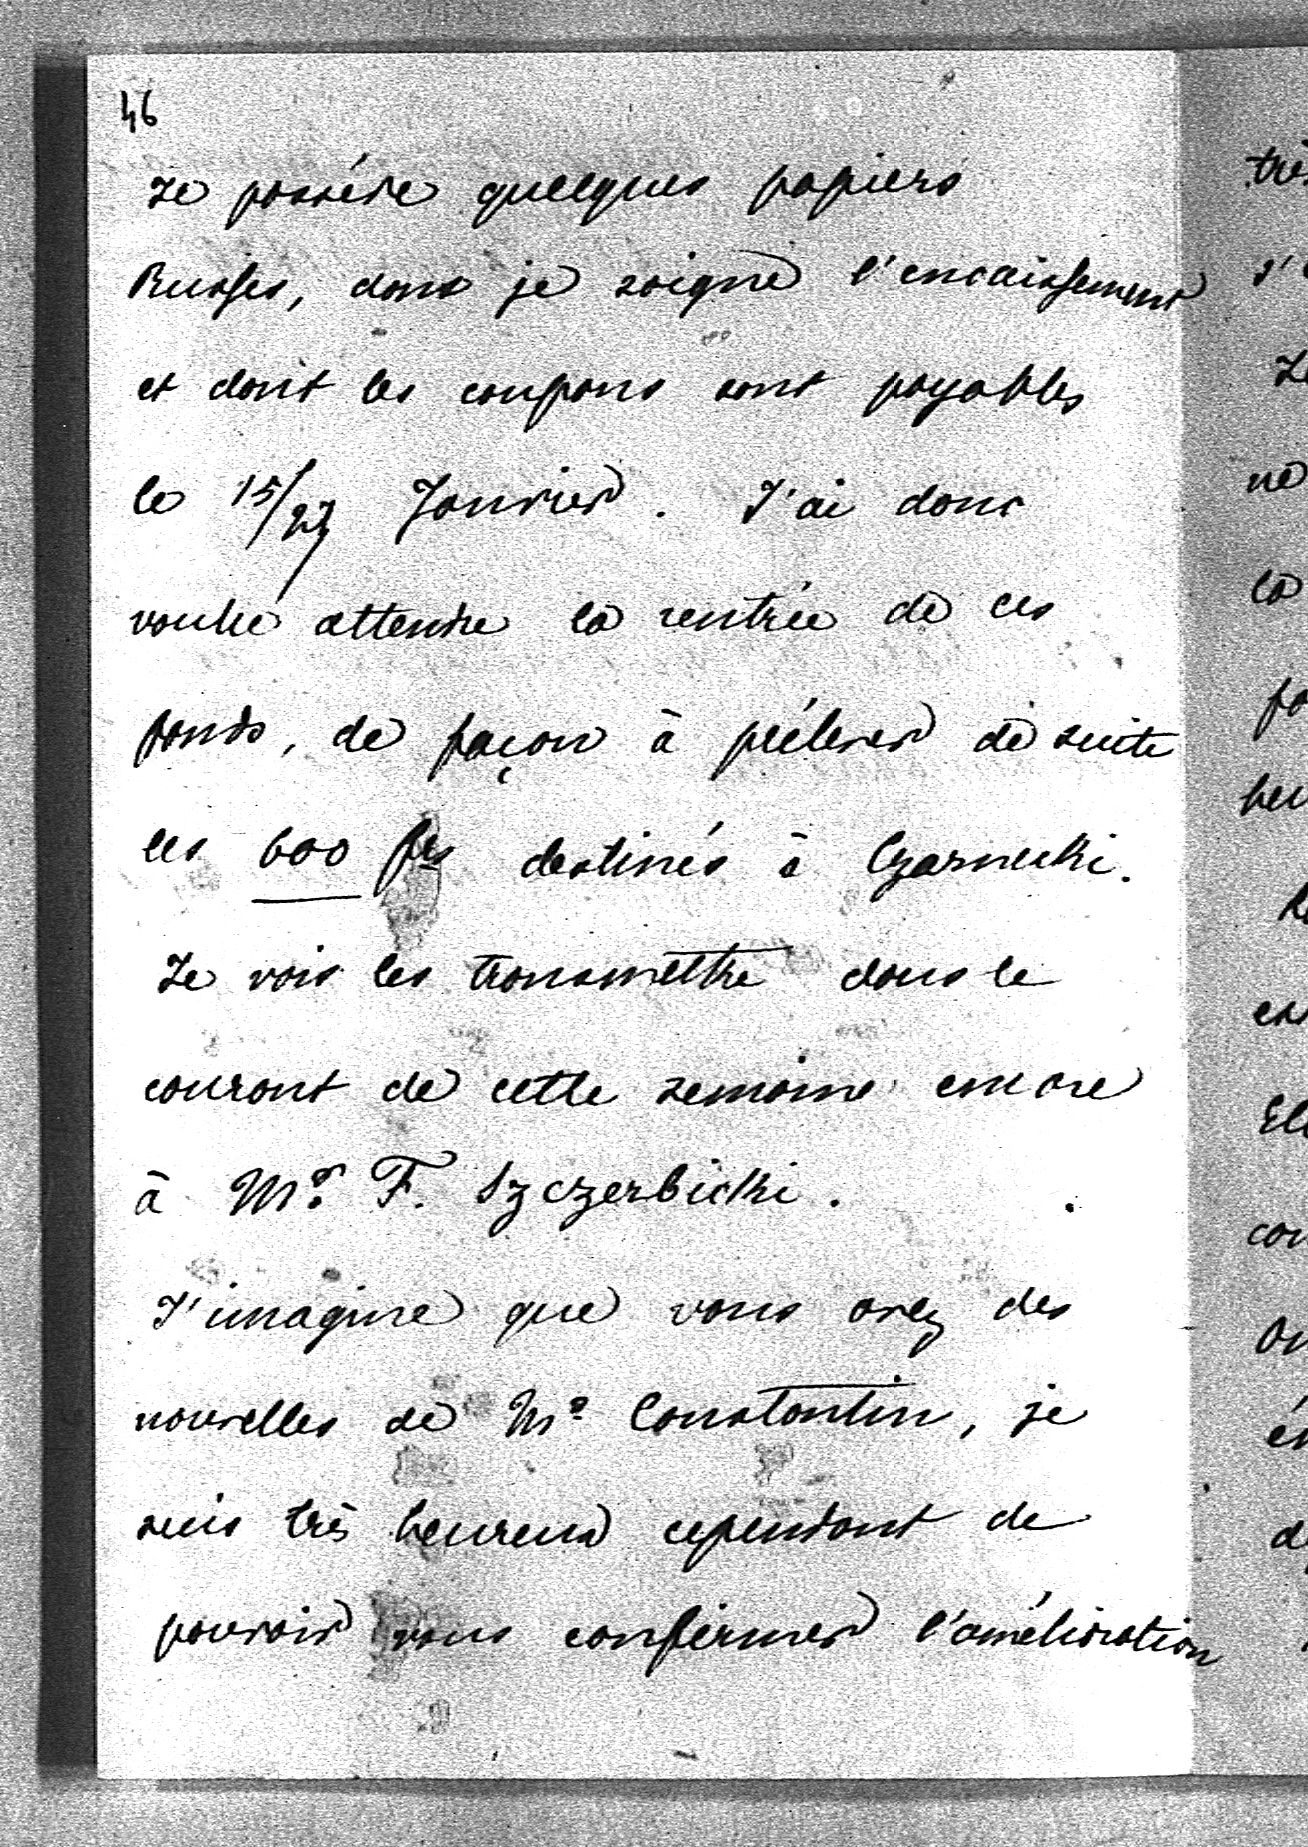 46
Je possède quelques papiers
Russes, dont je soigne l'encaissement
et dont les coupons sont payables
le 15/27 Janvier. J'ai donc
voulu attendre la rentrée de ces
fonds, de façon à prélever de suite
les 600 frs destinés à Czarnecki.
Je vais les transmettre dans le
courant de cette semaine encore
à Mr. F. Szczerbicki.
J'imagine que vous avez des
nouvelles de Mr. Constantin, je
suis très heureux cependant de
pouvoir vous confirmer l'amélioration